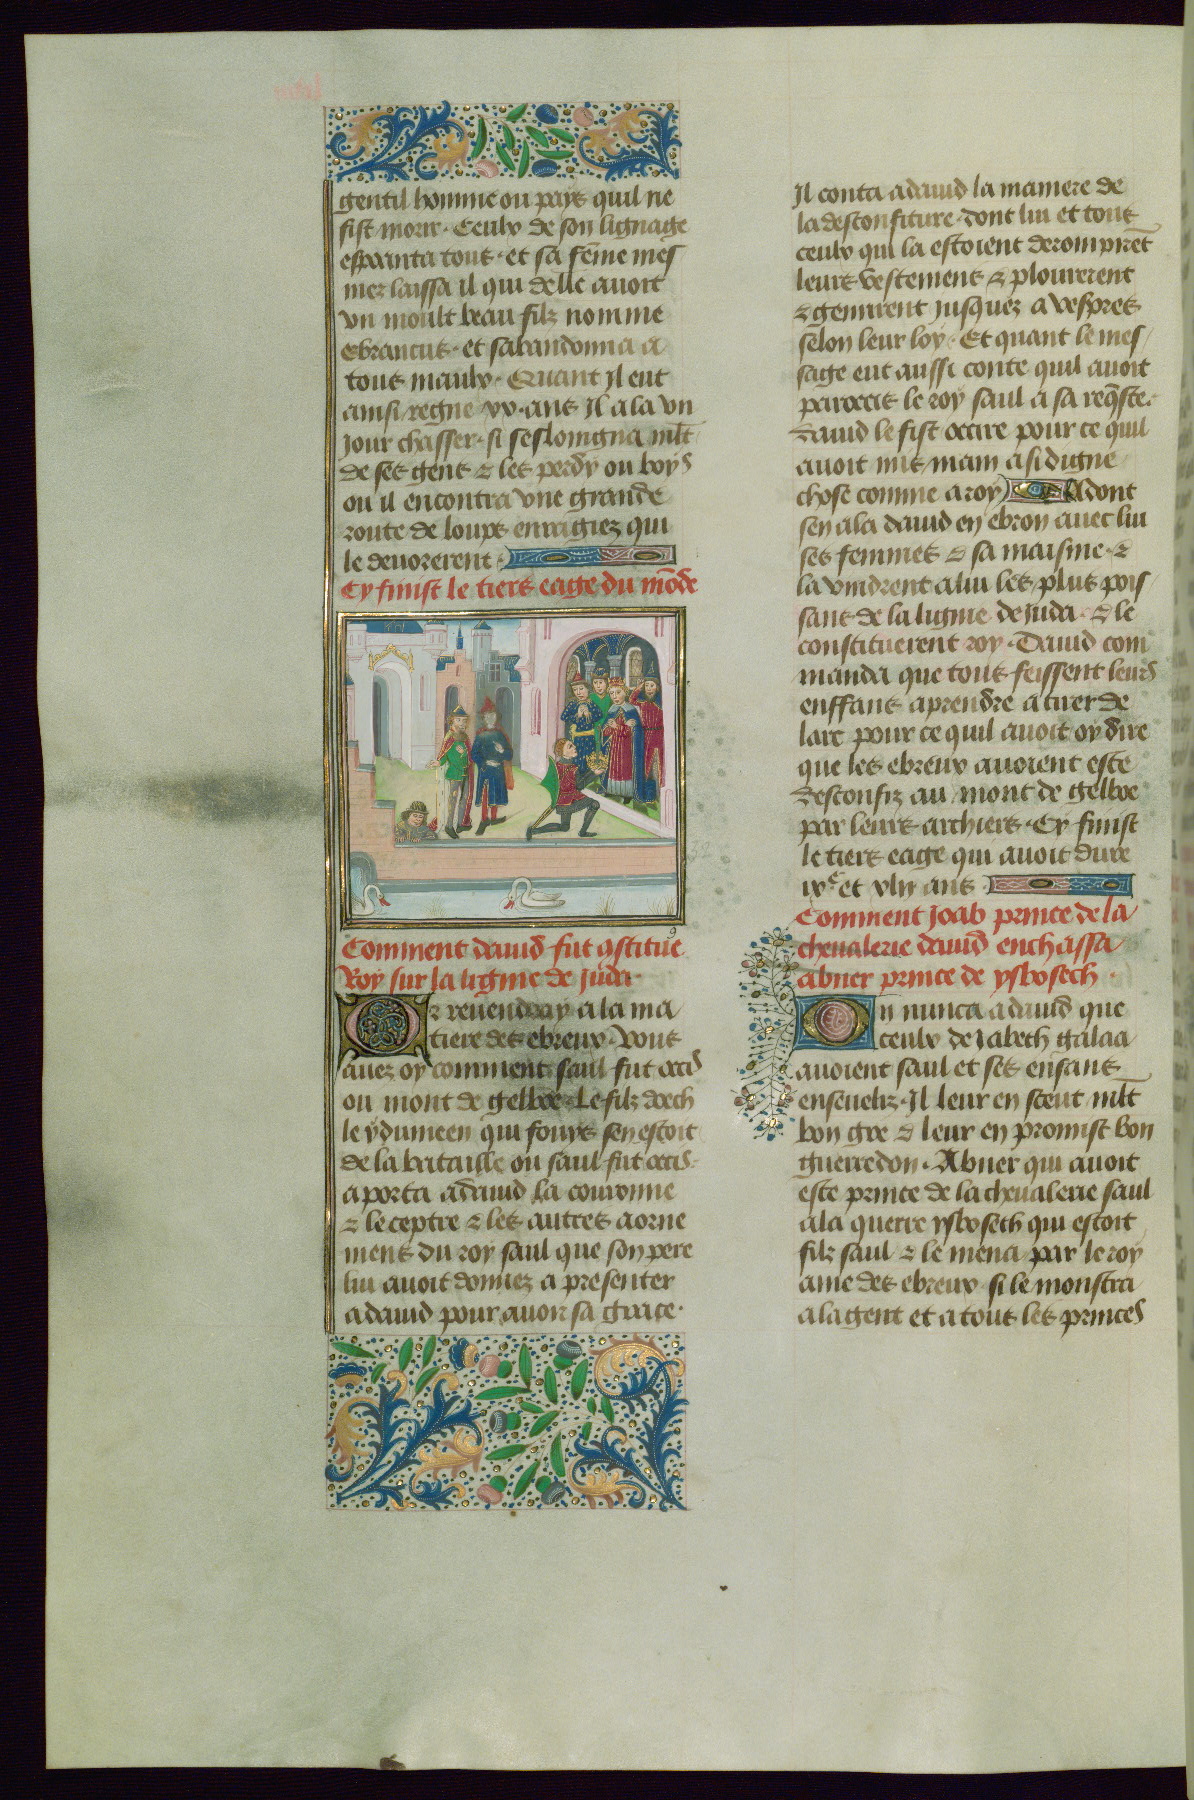 gentil homme ou pays quil ne
fist morir · Ceulx de son lignage
espoanta tous · et sa fēme mes
mez laissa il qui delle auoit
vn moult beau filz nomme
ebrancus · et sabandonna a
tous maulx · Quant Il eut
ainsi regne xx · ans Il ala vn
Jour chasser · si seslongna mlt̄
de ses gens ⁊ les perdy ou boys
ou il encontra vne grande
route de loups enragiez qui
le deuorerent ·
Cy finist le tiers eage du mōde
Comment dauid fut ꝯstitue
Roy sur la lignie de Juda ·
Or reuendray a la ma
tiere des ebreux · Vous
auez oy comment saul fut occis
ou mont de gelboe · Le filz doech
le ydumeen qui fouys sen estoit
de la bataille ou saul fut occis ·
aporta a dauid la couronne
⁊ le ceptre ⁊ les autres aorne
mens du roy saul que son pere
lui auoit donnez a presenter
a dauid pour auoir sa grace ·
Il conta a dauid la maniere de
la desconfiture · dont lui et tous
ceulx qui la estoient derompirēt
leurs vestemens ⁊ plourerent
⁊ gemirent jusquez a vespres
selon leur loy · Et quant le mes
sage eut aussi conte quil auoit
paroccis le roy saul a sa req̄ste ·
dauid le fist occire pour ce quil
auoit mis main a si digne
chose comme a roy Adont
sen ala dauid en ebron auec lui
ses femmes ⁊ sa maisnie · ⁊
la vindrent a lui les plus pois
sans de la lignie de Juda · ⁊ le
constituerent roy · Dauid com
manda que tous feissent leurs
enffans aprendre a tirer de
larc pour ce quil auoit oy dire
que les ebreux auoient este
desconfiz au mont de gelboe
par leurs archiers · Cy finist
le tiers eage qui auoit dure
ixᶜ et xlij ans
Comment Joab prince de la
cheualerie dauid enchassa
abner prince de ysbosech ·
On nunca a dauid que
ceulx de Jabech galaa
auoient saul et ses enfans
enseueliz · Il leur en sceut mlt̄
bon gre ⁊ leur en promist bon
guerredon · Abner qui auoit
este prince de la cheualerie saul
ala querre ysbosech qui estoit
filz saul ⁊ le mena par le roy
ame des ebreux si le monstra
a la gent et a tous les princes